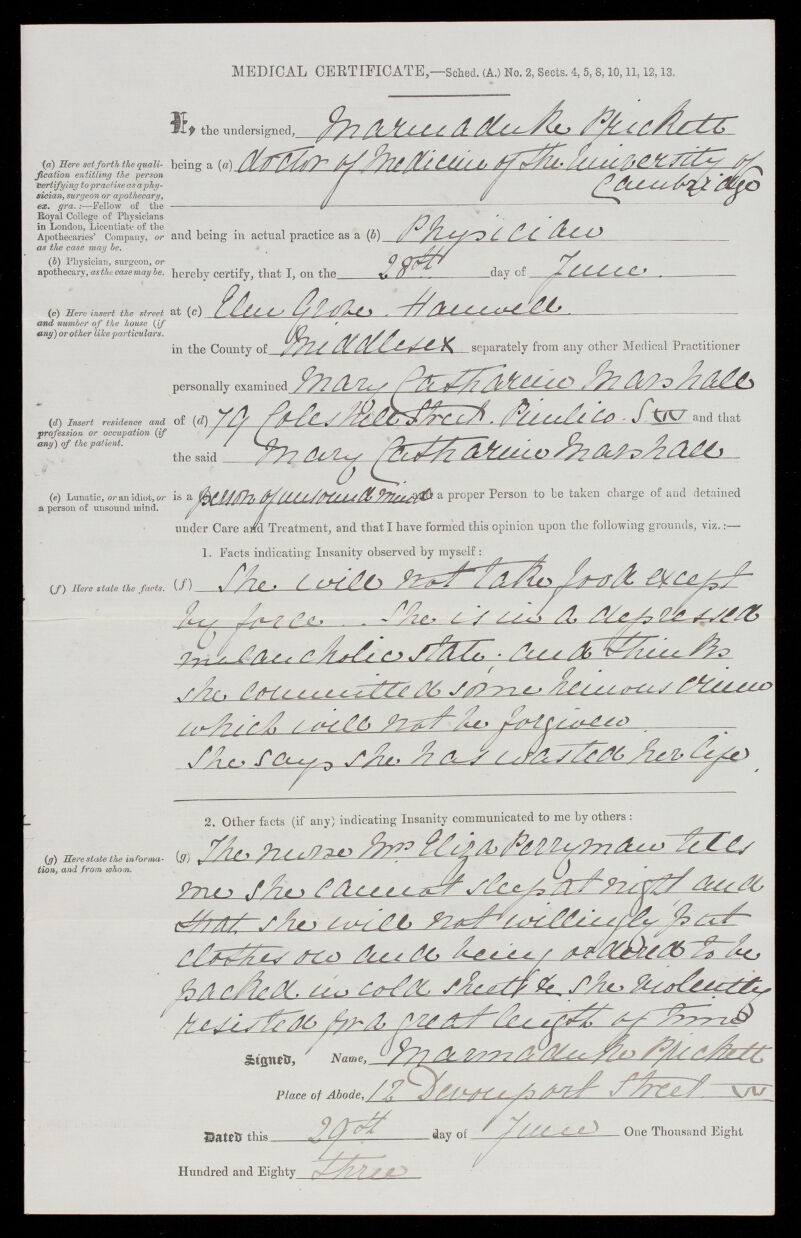 MEDICAL CERTIFICATE,—Sched. (A.) No. 2, Sects. 4, 5, 8, 10, 11, 12, 13.
I, the undersigned, Marmaduke Prickett
(a) Here set forth the quali-
fication entitling the person
certifying to practise as a phy-
sician, surgeon or apothecary,
ex. gra.:—Fellow of the
Royal College of Physicians
in London, Licentiate of the
Apothecaries' Company, or
as the case may be.
being a (a) doctor of Medicine of the University of
Cambridge
(b) Physician, surgeon, or
apothecary, as the case may be.
and being in actual practice as a (b) Physician
hereby certify, that I, on the 28th day of June.
(c) Here insert the street
and number of the house (if
any) or other like particulars.
at (c) Elm Grove. Hanwell.
in the County of Middlesex separately from any other Medical Practitioner
personally examined Mary Catharine Marshall
(d) Insert residence and
profession or occupation (if
any) of the patient.
of (d) 79 Coleshill Street. Pimlico. SW and that
the said Mary Catharine Marshall
(e) Lunatic, or an idiot, or
a person of unsound mind.
is a person of unsound mind and a proper Person to be taken charge of and detained
under Care and Treatment, and that I have formed this opinion upon the following grounds, viz.:—
1. Facts indicating Insanity observed by myself:
(f) Here state the facts.
(f) She will not take food except
by force. She is in a depressed
melancholic state; and thinks
she committed some heinous crime
which will not be forgiven
She says she has wasted her life.
2. Other facts (if any) indicating Insanity communicated to me by others:
(g) Here state the informa-
tion, and from whom.
(g) The nurse Mrs Eliza Perryman tells
me she cannot sleep at night and
that she will not willingly put
clothes on and being ordered to be
packed in cold sheets &c she violently
resisted for a great length of time
Signed, Name, Marmaduke Prickett
Place of Abode, 12 Devonport Street W
Dated this 29th day of June One Thousand Eight
Hundred and Eighty three